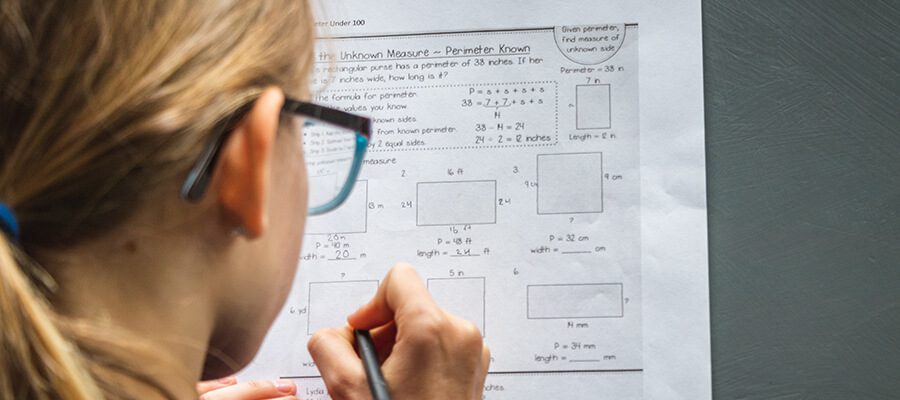 ter Under 100
Given perimeter,
find measure of
unknown side
the Unknown Measure ~ Perimeter Known
rectangular purse has a perimeter of 38 inches. If her
is 7 inches wide, how long is it?
Perimeter = 38 in
7 in
Length = 12 in
the formula for perimeter.
values you know.
known sides.
from known perimeter.
by 2 equal sides.
P = s + s + s + s
38 = 7 + 7 + s + s
14
38 - 14 = 24
24 ÷ 2 = 12 inches
measure
13 m
20m
P = 40 m
width = 20 m
2.
16 ft
24
24
16 ft
P = 48 ft
length = 24 ft
3.
9 cm
?
P = 32 cm
width = ____ cm
?
6 yd
wid
5 in
6.
?
14 mm
P = 34 mm
length = ____ mm
Lydia
ches